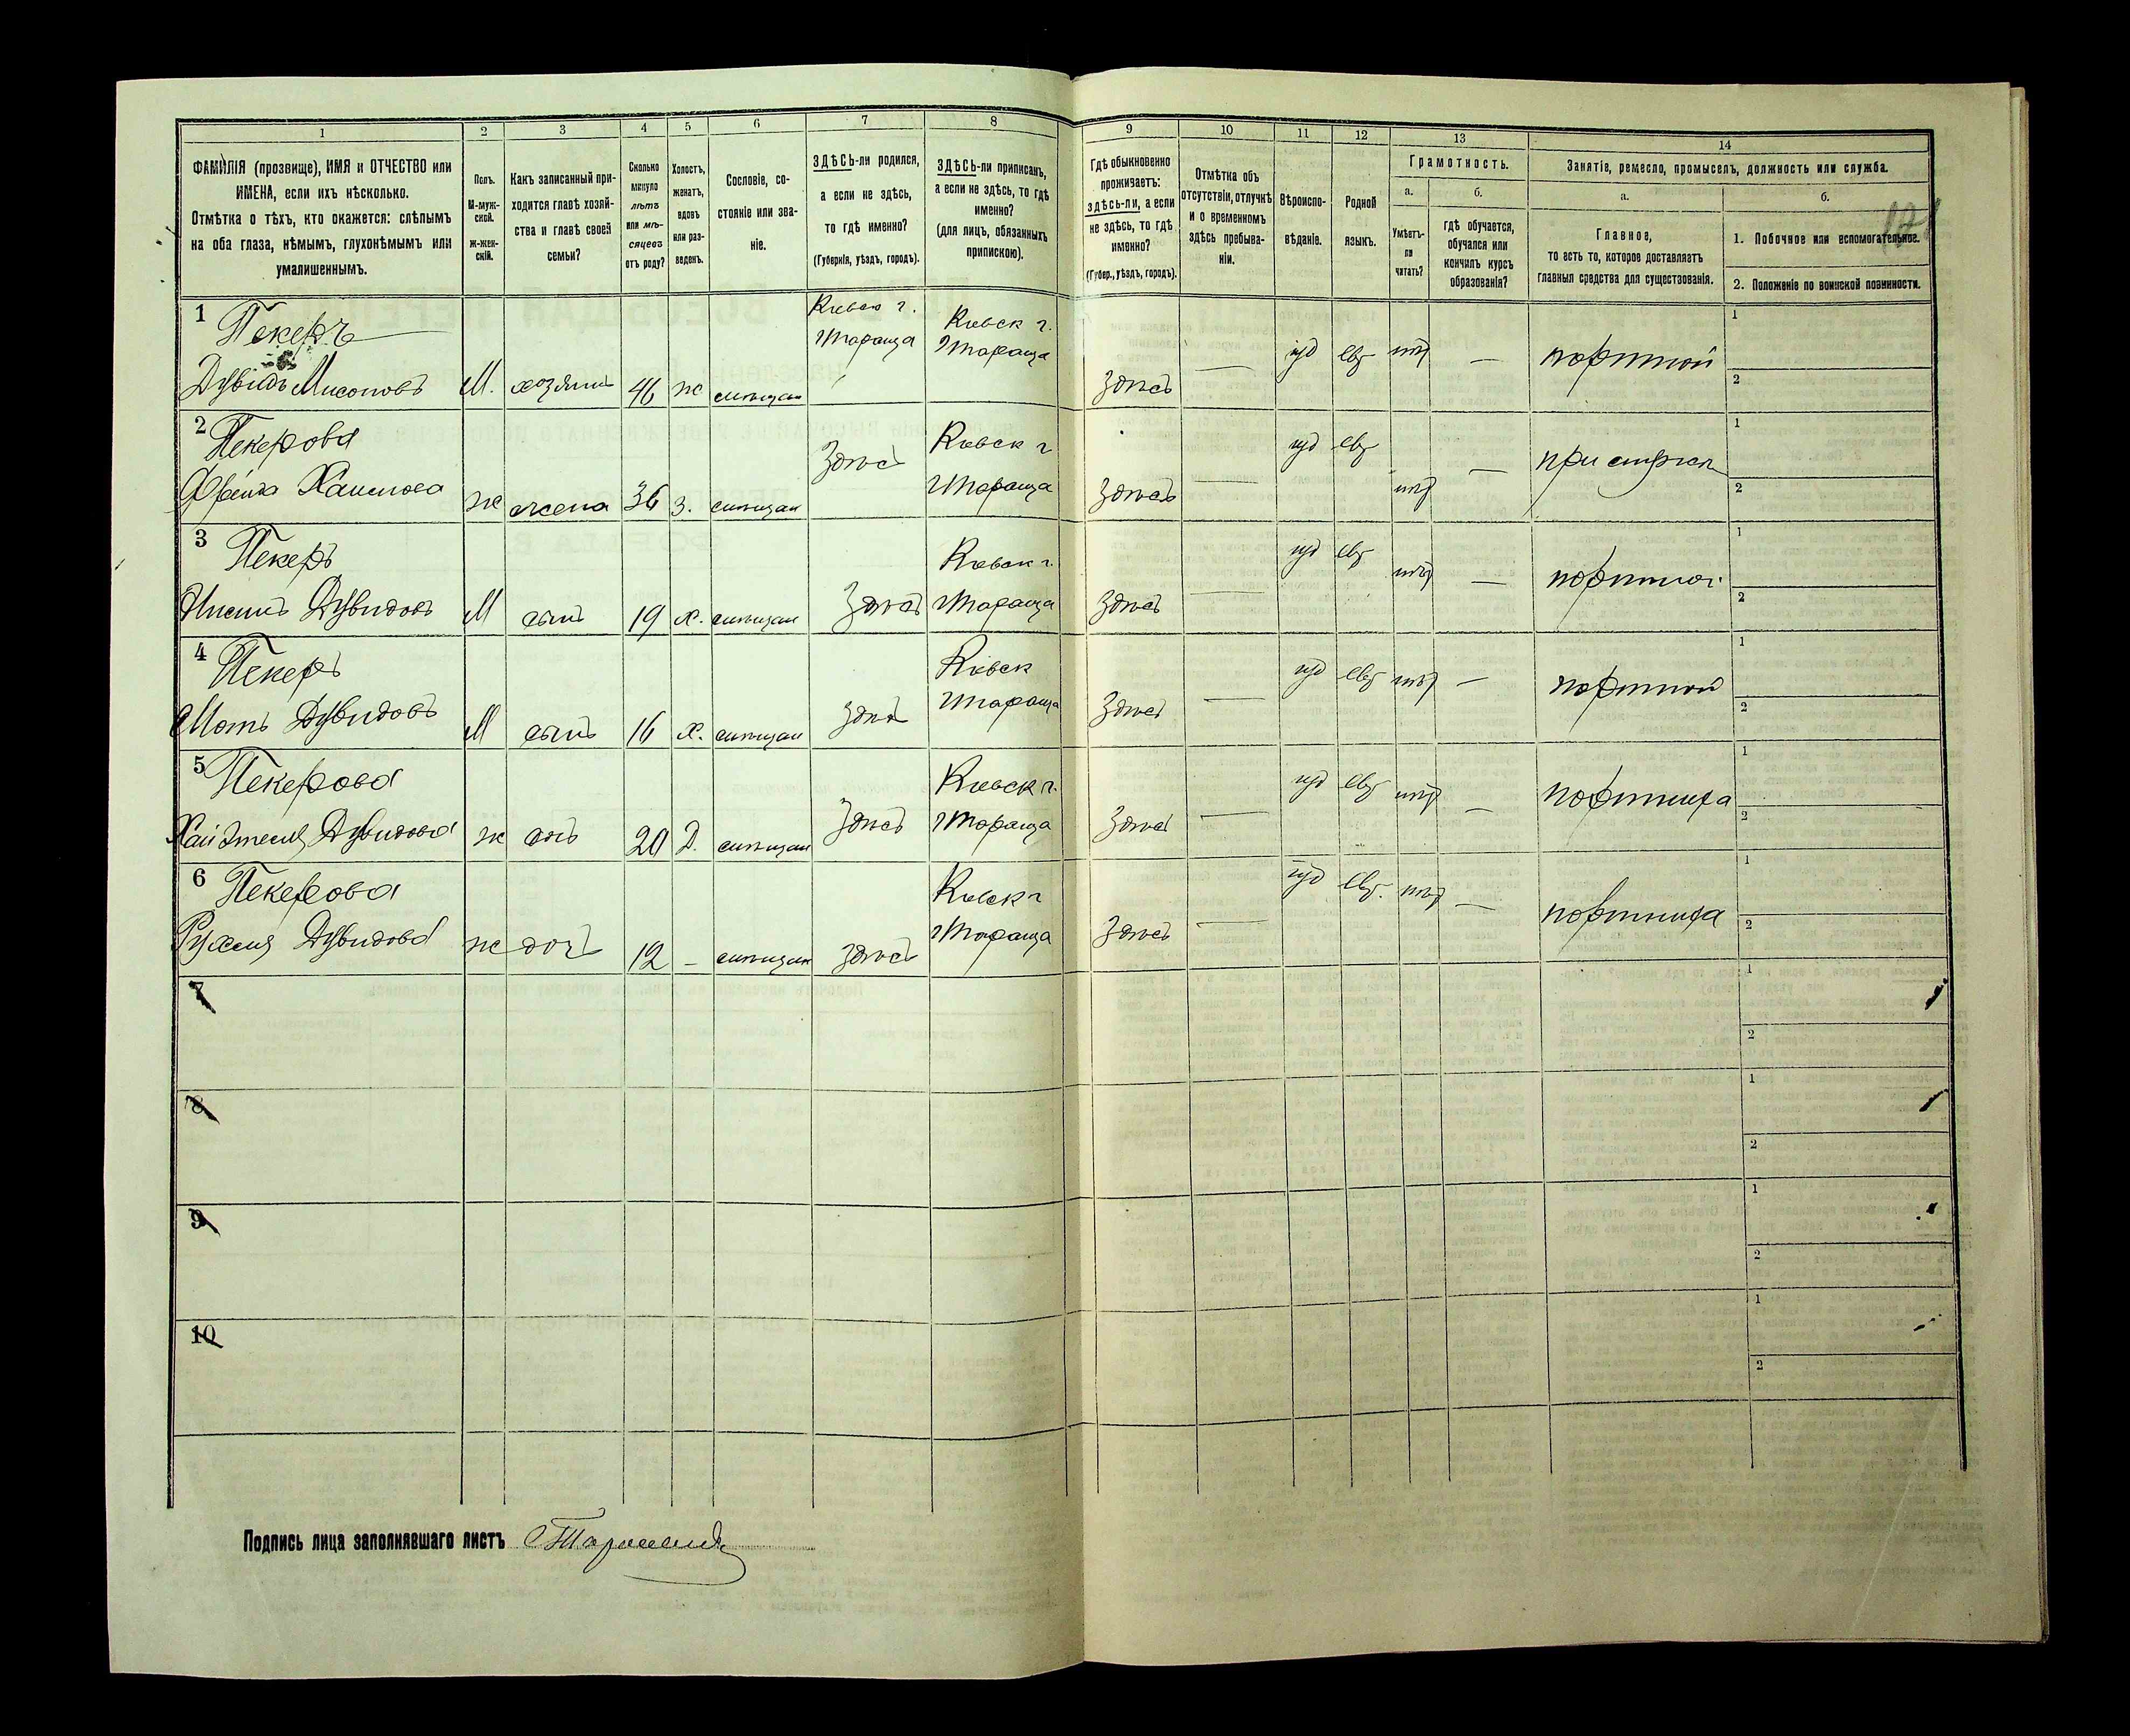 1 2 3 4 5 6 7 8 9 10 11 12 13 14
ФАМИЛІЯ (прозвище), ИМЯ и ОТЧЕСТВО или
ИМЕНА, если ихъ нѣсколько.
Отмѣтка о тѣхъ, кто окажется: слѣпымъ
на оба глаза, нѣмымъ, глухонѣмымъ или
умалишеннымъ.
Полъ.
М-муж-
ской.
ж-жен-
скій.
Какъ записанный при-
ходится главѣ хозяй-
ства и главѣ своей
семьи?
Сколько
минуло
лѣтъ
или мѣ-
сяцевъ
отъ роду?
Холостъ,
женатъ,
вдовъ
или раз-
веденъ.
Сословіе, со-
стояніе или зва-
ніе.
ЗДѢСЬ-ли родился,
а если не здѣсь,
то гдѣ именно?
(Губернія, уѣздъ, городъ).
ЗДѢСЬ-ли приписанъ,
а если не здѣсь, то гдѣ
именно?
(для лицъ, обязанныхъ
припискою).
Гдѣ обыкновенно
проживаетъ:
здѣсь-ли, а если
не здѣсь, то гдѣ
именно?
(Губер., уѣздъ, городъ).
Отмѣтка объ
отсутствіи, отлучкѣ
и о временномъ
здѣсь пребыва-
ніи.
Вѣроиспо-
вѣданіе.
Родной
языкъ.
Грамотность.
а.
Умѣетъ-
ли
читать?
б.
гдѣ обучается,
обучался или
кончилъ курсъ
образованія?
Занятіе, ремесло, промыселъ, должность или служба.
а.
Главное,
то есть то, которое доставляетъ
главныя средства для существованія.
б.
1. Побочное или вспомогательное.
2. Положеніе по воинской повинности.
1 Пекеръ Кіевск г. Кіевск г.
Тараща Тараща іуд евр нѣт — портной 1
Дувидъ М. хозяинъ 46 ж мѣщан здѣсь — 2
2 Пекерова Кіевск г іуд евр 1
Здѣсь — при
Ж жена 36 З. мѣщан Тараща Здѣсь — нѣт 2
3 Пекеръ Кіевск г. іуд евр нѣт — портной 1
Дувидовъ М сынъ 19 Х. мѣщан Здѣсь Тараща Здѣсь — 2
4 Пекеръ Кіевск іуд евр нѣт — портной 1
Дувидовъ М сынъ 16 Х. мѣщан здѣсь Тараща Здѣсь — 2
5 Пекерова Кіевск г. іуд евр нѣт — портниха 1
Дувидова Ж 20 Д. мѣщан Здѣсь Тараща Здѣсь — 2
6 Пекерова Кіевск г іуд евр. нѣт — портниха 1
Рухля Дувидова Ж доч 12 — мѣщан здѣсь Тараща Здѣсь — 2
7 1
2
8 1
2
9 1
2
10 1
2
Подпись лица заполнявшаго листъ